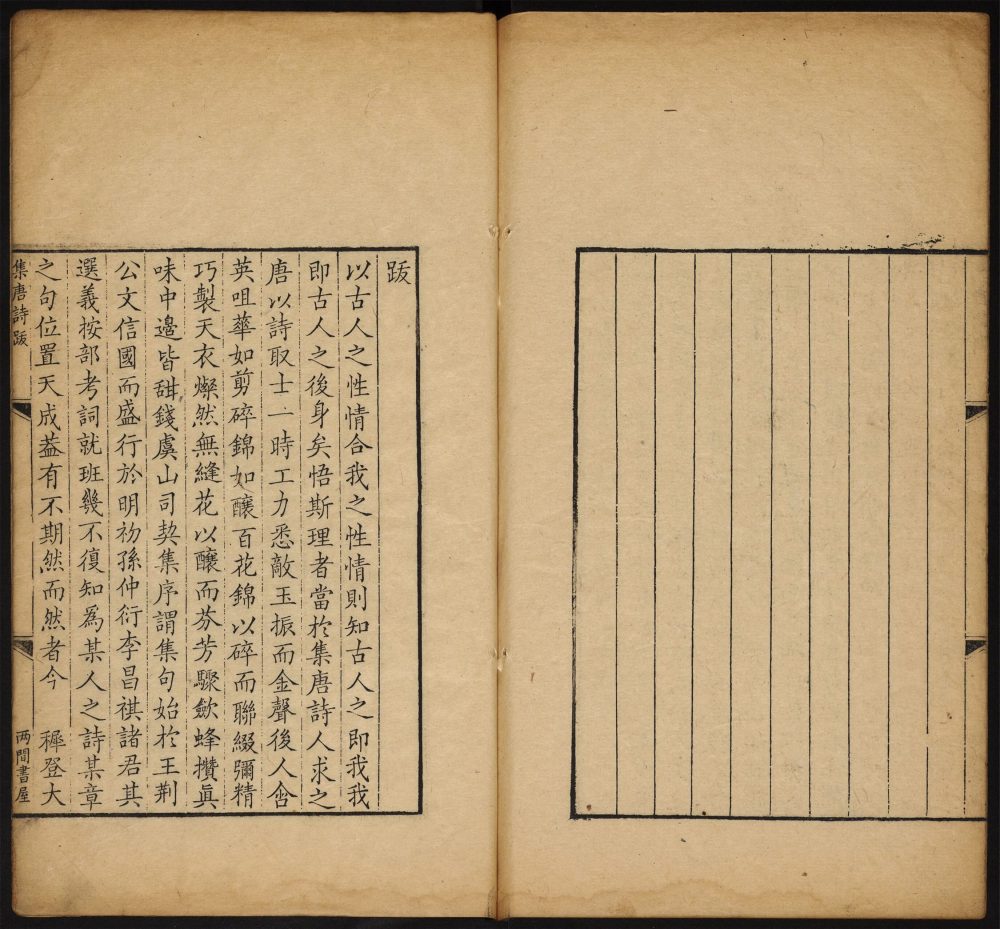 跋
以古人之性情合我之性情則知古人之即我我
即古人之後身矣悟斯理者當於集唐詩人求之
唐以詩取士一時工力悉敵玉振而金聲後人含
英咀華如剪碎錦如釀百花錦以碎而聯綴彌精
巧製天衣燦然無縫花以釀而芬芳驟歛蜂攢眞
味中邊皆甜錢虞山司契集序謂集句始於王荆
公文信國而盛行於明初孫仲衍李昌祺諸君其
選義按部考詞就班幾不復知爲某人之詩某章
之句位置天成葢有不期然而然者今 穉登大
集唐詩 跋 两間書屋